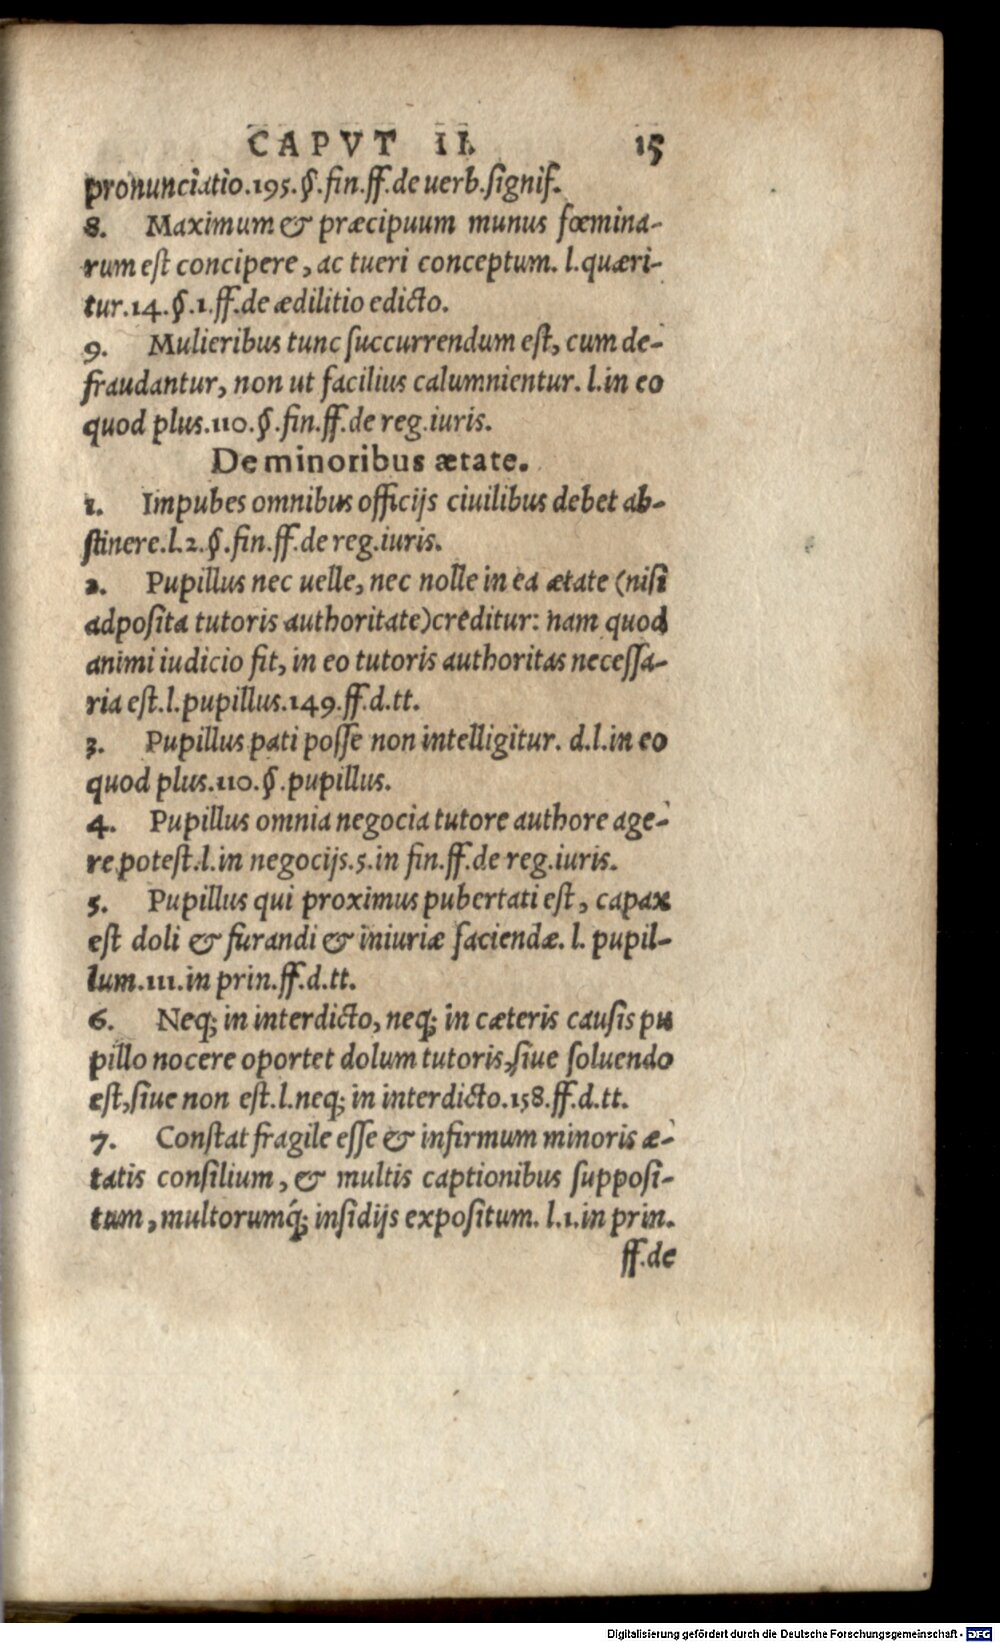 CAPVT II. 15
pronunciatio.195.§.fin.ff.de uerb.signif.
8. Maximum & præcipuum munus fœmina-
rum est concipere, ac tueri conceptum. l.quæri-
tur.14.§.1.ff.de ædilitio edicto.
9. Mulieribus tunc succurrendum est, cum de-
fraudantur, non ut facilius calumnientur. l.in eo
quod plus.110.§.fin.ff.de reg.iuris.
De minoribus ætate.
1. Impubes omnibus officijs ciuilibus debet ab-
stinere.l.2.§.fin.ff.de reg.iuris.
2. Pupillus nec uelle, nec nolle in ea ætate (nisi
adposita tutoris authoritate)creditur: nam quod
animi iudicio fit, in eo tutoris authoritas necessa-
ria est.l.pupillus.149.ff.d.tt.
3. Pupillus pati posse non intelligitur. d.l.in eo
quod plus.110.§.pupillus.
4. Pupillus omnia negocia tutore authore age-
re potest.l.in negocijs.5.in fin.ff.de reg.iuris.
5. Pupillus qui proximus pubertati est, capax
est doli & furandi & iniuriæ faciendæ. l. pupil-
lum.111.in prin.ff.d.tt.
6. Neq; in interdicto, neq; in cæteris causis pu
pillo nocere oportet dolum tutoris, siue soluendo
est, siue non est.l.neq; in interdicto.158.ff.d.tt.
7. Constat fragile esse & infirmum minoris æ-
tatis consilium, & multis captionibus supposi-
tum, multorumq́; insidijs expositum. l.1.in prin.
ff.de
Digitalisierung gefördert durch die Deutsche Forschungsgemeinschaft - DFG